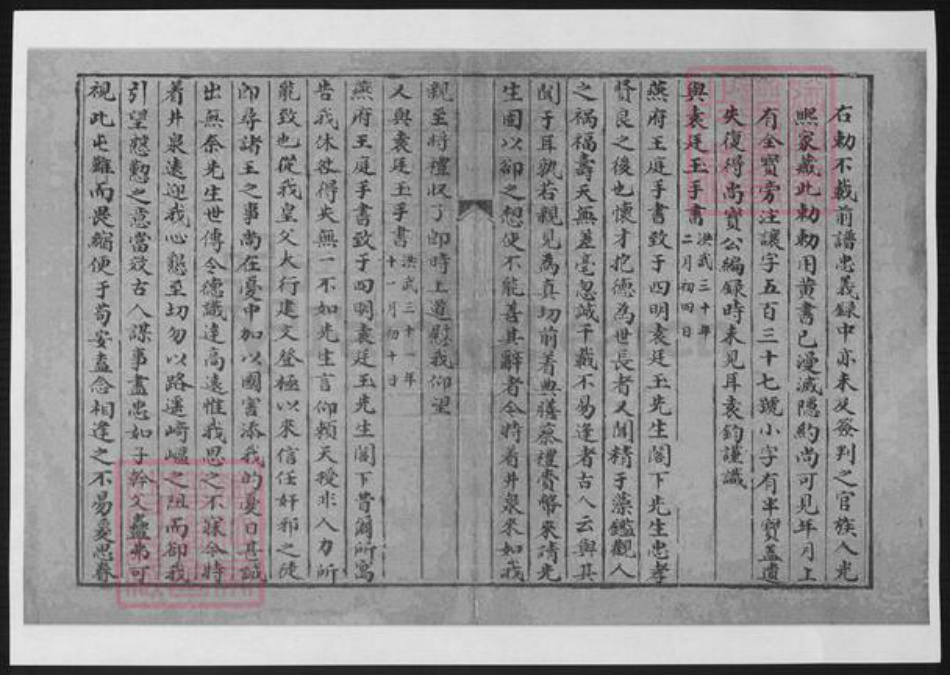 右勅不載前譜忠義録中亦未及簽判之官族人光
熙家藏此勅勅用黄書已漫滅隱約尚可見年月上
有全寶旁注讓字五百三十七號小字有半寶蓋遺
失復得尚寶公編録時未見耳袁鈞謹識
與袁廷玉手書 洪武三十年二月初四日
燕府王庭手書致于四明袁廷玉先生閣下先生忠孝
賢良之後也懷才抱德為世長者又聞精于藻鑑觀人
之禍福壽夭無差毫忽誠千載不易逢者古人云與其
聞于耳孰若親見為真切前着典膳蔡禮賫幣來請先
生固以卻之想使不能善其辭者今特着井泉來如我
親至將禮収了即時上道慰我仰望
又與袁廷玉手書 洪武三十一年十一月初十日
燕府王庭手書致于四明袁廷玉先生閣下昔爾所寓
告我休咎得失無一不如先生言仰賴天授非人力所
能致也從我皇父大行建文登極以來信任奸邪之徒
即尋諸王之事尚在憂中加以國害添我的憂日甚誠
出無奈先生世傳令德識達高遠惟我思之不寐今特
着井泉遠迎我心懇至切勿以路遥崎嶇之阻而卻我
引望懇懃之意當效古人謀事盡忠如子幹父蠱弗可
視此屯難而畏縮便于苟安盍念相逢之不易爰思眷